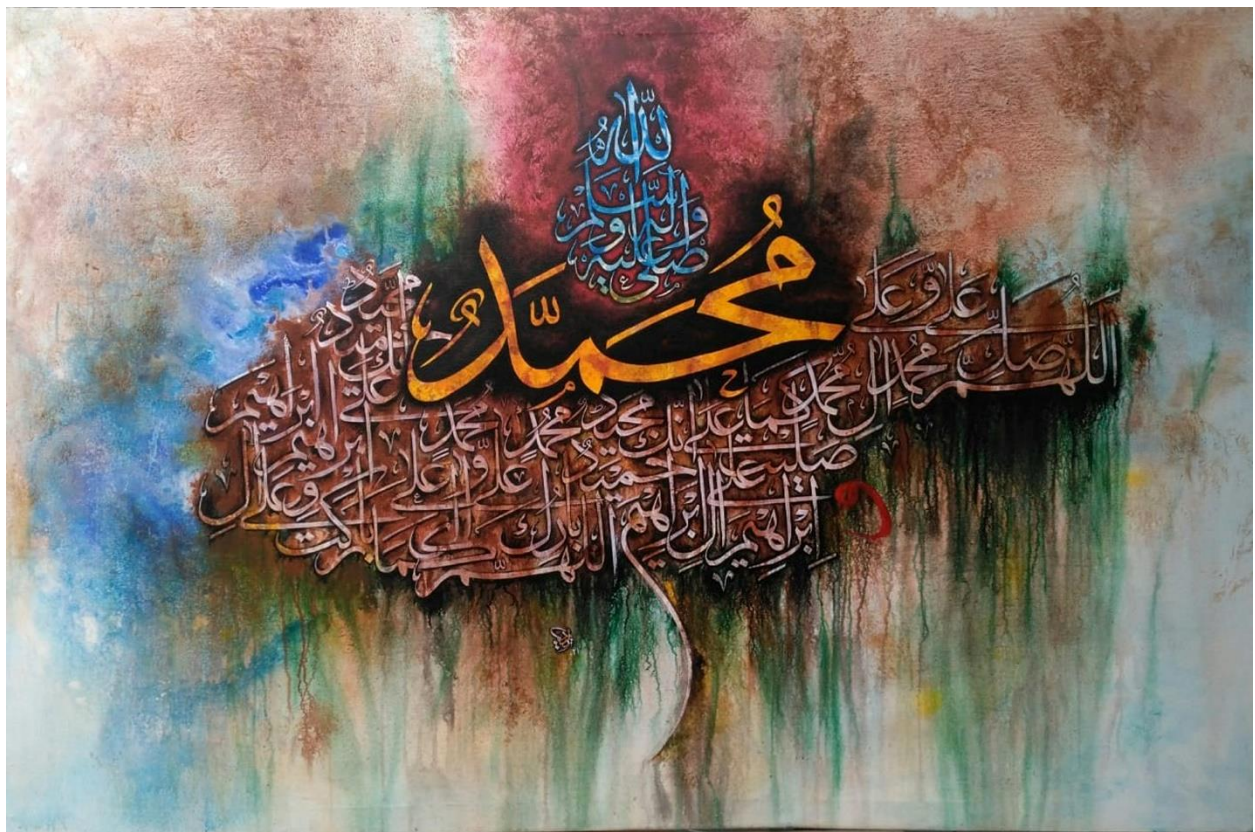 صلى الله عليه وآله وسلم
مُحَمَّدٌ
اَللّٰهُمَّ صَلِّ عَلٰى مُحَمَّدٍ وَّعَلٰى اٰلِ مُحَمَّدٍ
كَمَا صَلَّيْتَ عَلٰى اِبْرَاهِيْمَ وَعَلٰى اٰلِ اِبْرَاهِيْمَ اِنَّكَ حَمِيْدٌ مَّجِيْدٌ
اَللّٰهُمَّ بَارِكْ عَلٰى مُحَمَّدٍ وَّعَلٰى اٰلِ مُحَمَّدٍ
كَمَا بَارَكْتَ عَلٰى اِبْرَاهِيْمَ وَعَلٰى اٰلِ اِبْرَاهِيْمَ اِنَّكَ حَمِيْدٌ مَّجِيْدٌ